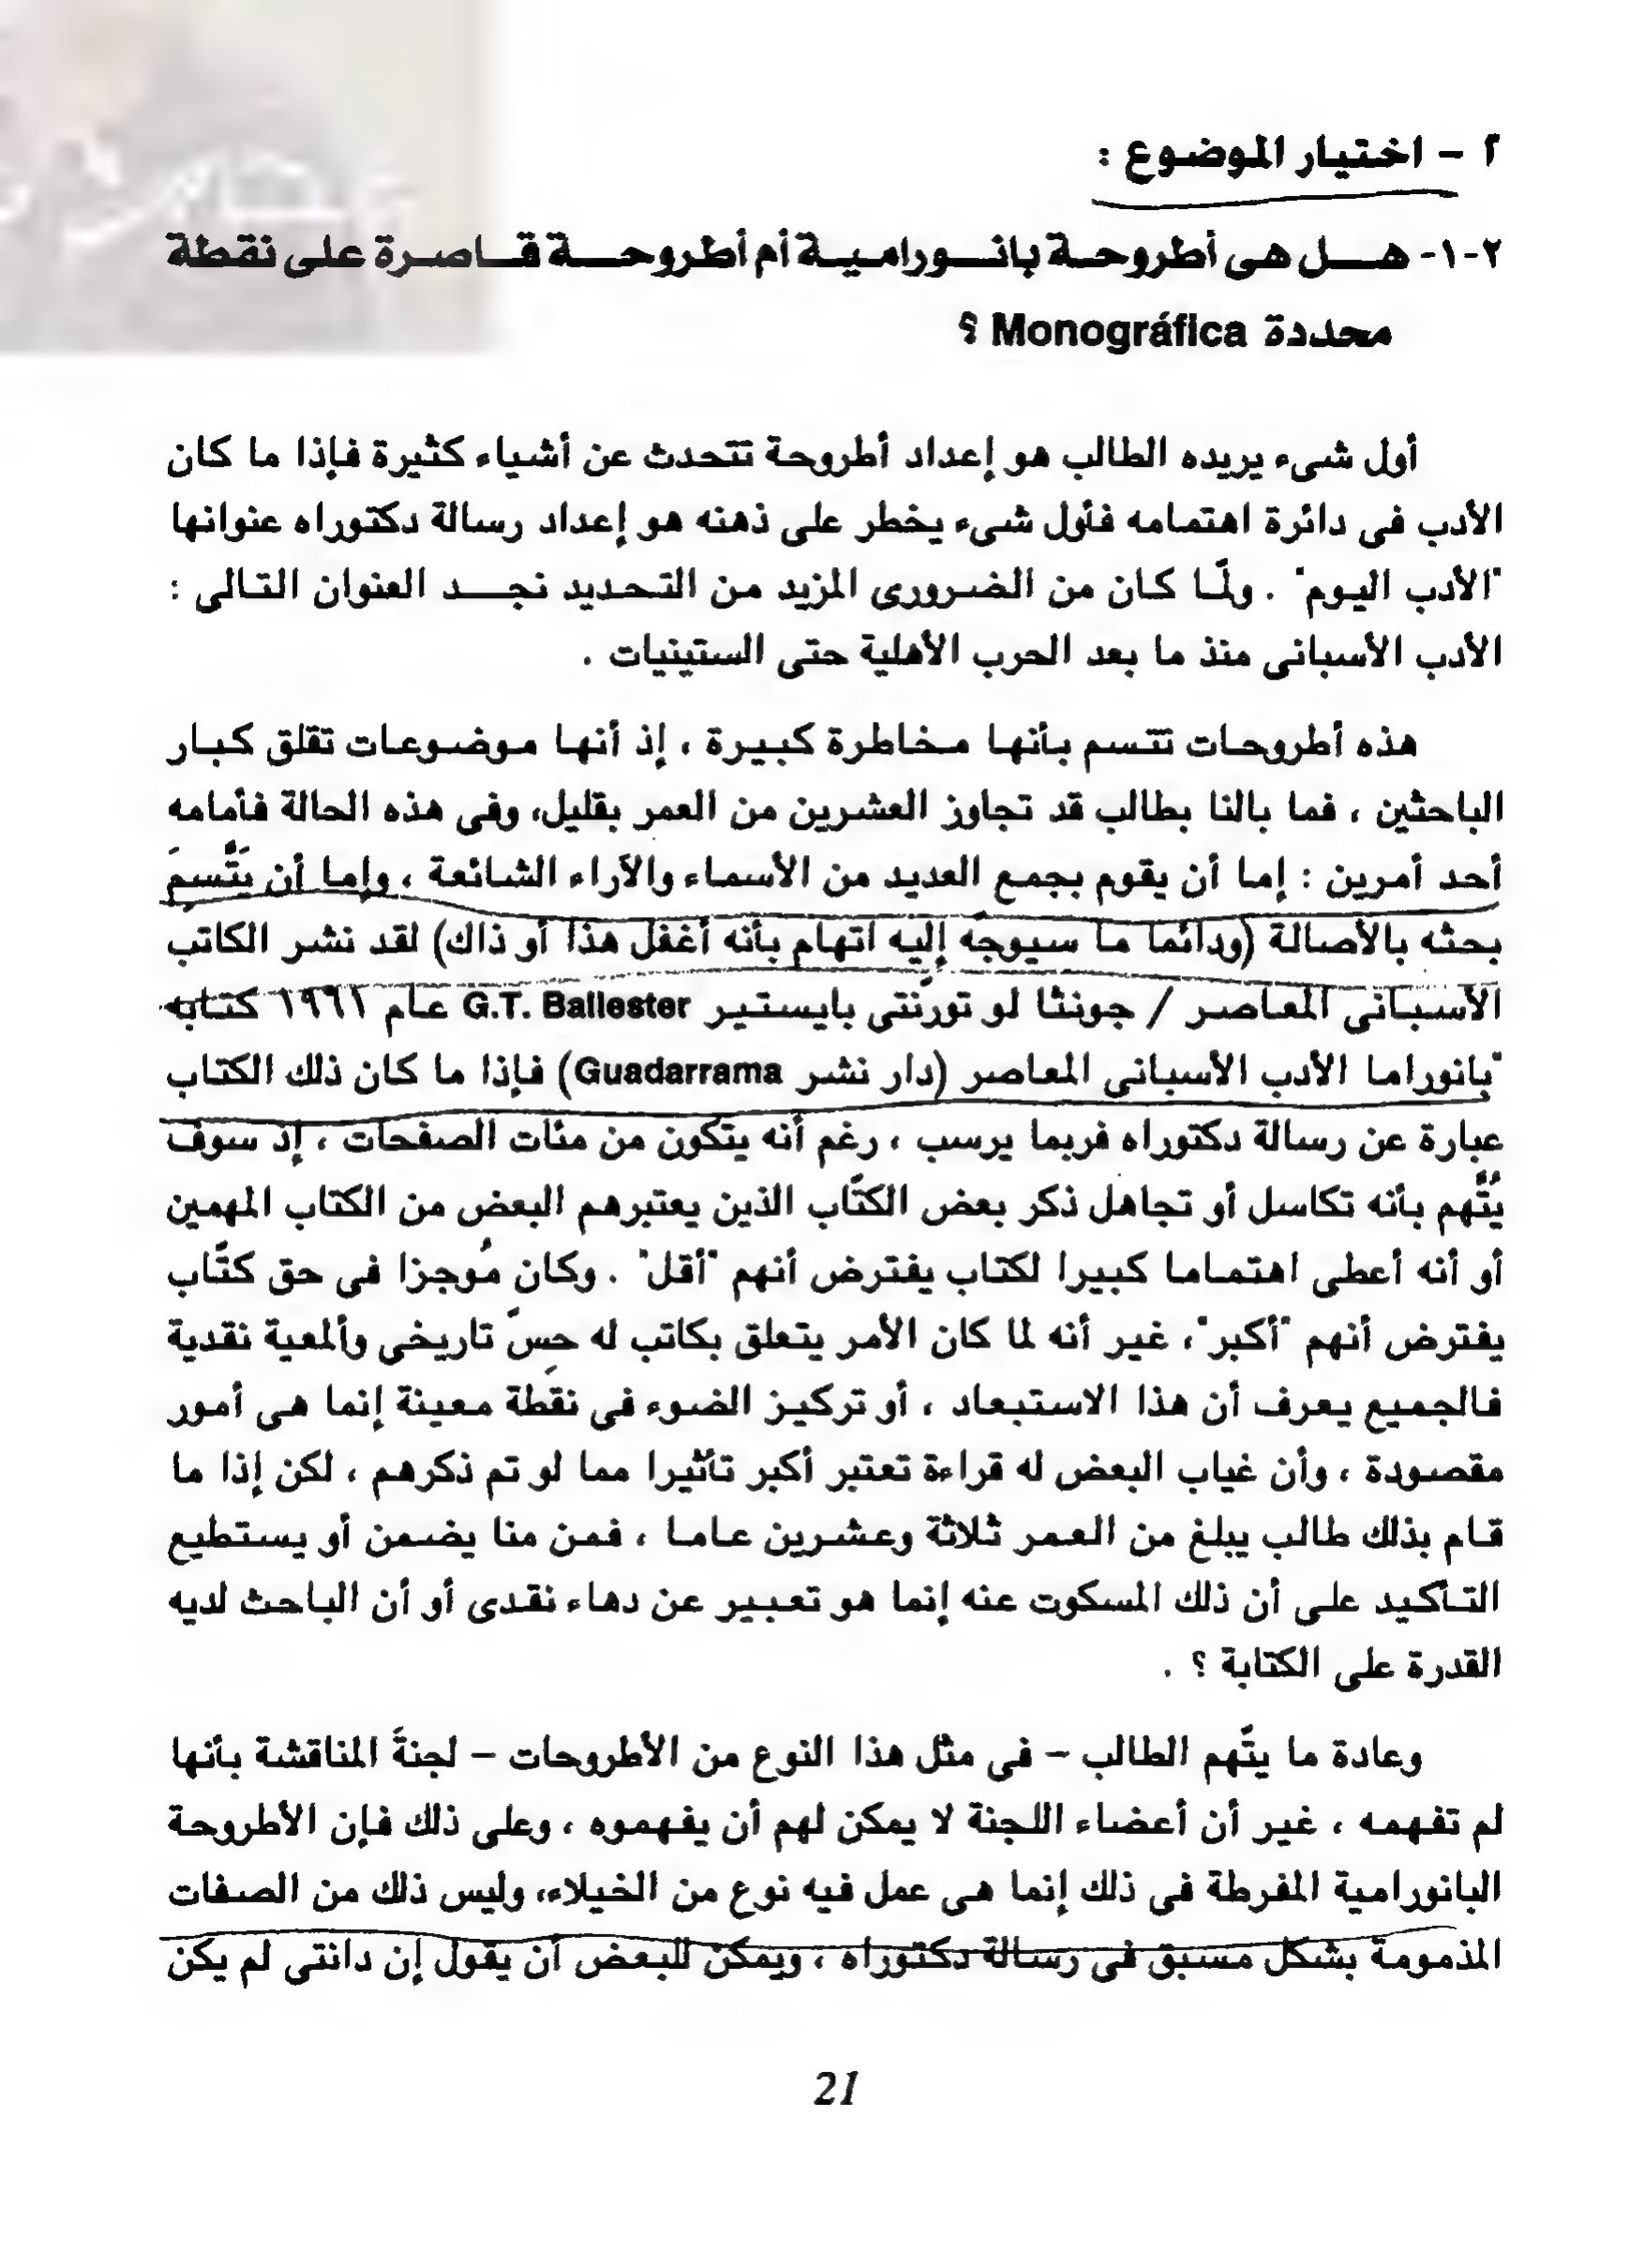 ٢ - اختيار الموضوع :
٢-١- هـــل هى أطروحـة بانـــورامـيــة أم أطروحـــة قــاصـرة على نقطة
محددة Monográfica ؟
أول شىء يريده الطالب هو إعداد أطروحة تتحدث عن أشياء كثيرة فإذا ما كان
الأدب فى دائرة اهتمامه فأول شىء يخطر على ذهنه هو إعداد رسالة دكتوراه عنوانها
"الأدب اليوم" . ولمّا كان من الضرورى المزيد من التحديد نجــد العنوان التالى :
الأدب الأسبانى منذ ما بعد الحرب الأهلية حتى الستينيات .
هذه أطروحات تتسم بأنها مخاطرة كبيرة ، إذ أنها موضوعات تقلق كبار
الباحثين ، فما بالنا بطالب قد تجاوز العشرين من العمر بقليل، وفى هذه الحالة فأمامه
أحد أمرين : إما أن يقوم بجمع العديد من الأسماء والآراء الشائعة ، وإما أن يَتَّسمَ
بحثه بالأصالة (ودائما ما سيوجه إليه اتهام بأنه أغفل هذا أو ذاك) لقد نشر الكاتب
الأسبانى المعاصر / جونثا لو تورّنتى بايستير G.T. Ballester عام ١٩٦١ كتابه
"بانوراما الأدب الأسبانى المعاصر (دار نشر Guadarrama) فإذا ما كان ذلك الكتاب
عبارة عن رسالة دكتوراه فربما يرسب ، رغم أنه يتكون من مئات الصفحات ، إذ سوف
يُتَّهم بأنه تكاسل أو تجاهل ذكر بعض الكتّاب الذين يعتبرهم البعض من الكتاب المهمين
أو أنه أعطى اهتماما كبيرا لكتاب يفترض أنهم "أقل" . وكان مُوجزا فى حق كتّاب
يفترض أنهم "أكبر"، غير أنه لما كان الأمر يتعلق بكاتب له حِسّ تاريخى وألمعية نقدية
فالجميع يعرف أن هذا الاستبعاد ، أو تركيز الضوء فى نقطة معينة إنما هى أمور
مقصودة ، وأن غياب البعض له قراءة تعتبر أكبر تأثيرا مما لو تم ذكرهم ، لكن إذا ما
قام بذلك طالب يبلغ من العمر ثلاثة وعشرين عاما ، فمن منا يضمن أو يستطيع
التأكيد على أن ذلك المسكوت عنه إنما هو تعبير عن دهاء نقدى أو أن الباحث لديه
القدرة على الكتابة ؟ .
وعادة ما يتّهم الطالب – فى مثل هذا النوع من الأطروحات – لجنةَ المناقشة بأنها
لم تفهمه ، غير أن أعضاء اللجنة لا يمكن لهم أن يفهموه ، وعلى ذلك فإن الأطروحة
البانورامية المفرطة فى ذلك إنما هى عمل فيه نوع من الخيلاء، وليس ذلك من الصفات
المذمومة بشكل مسبق فى رسالة دكتوراه ، ويمكن للبعض أن يقول إن دانتى لم يكن
21